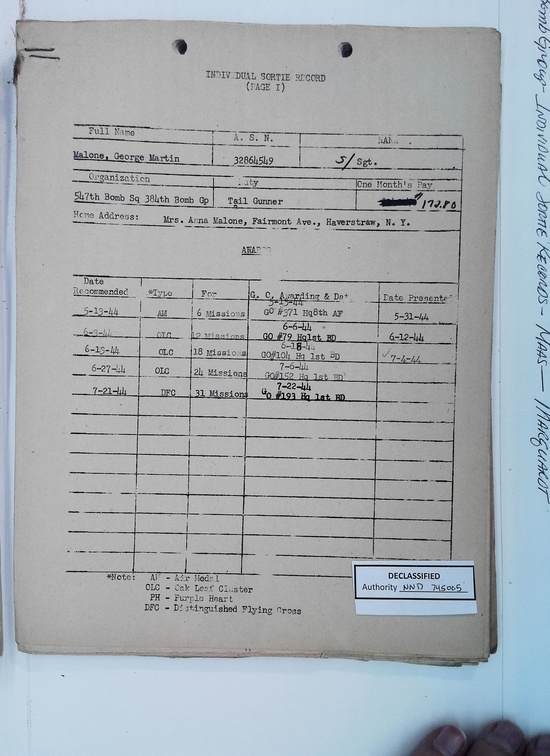 INDIVIDUAL SORTIE RECORD
(PAGE I)
Full Name A. S. N. RANK
Malone, George Martin 32864549 S/Sgt.
Organization Duty One Month's Pay
547th Bomb Sq 384th Bomb Gp Tail Gunner 172.80
Home Address: Mrs. Anna Malone, Fairmont Ave., Haverstraw, N. Y.
AWARDS
Date Recommended *Type For G. O. Awarding & Date Date Presented
5-13-44 AM 6 Missions 5-15-44 GO #371 Hq8th AF 5-31-44
6-3-44 OLC 12 Missions 6-6-44 GO #79 Hq1st BD 6-12-44
6-13-44 OLC 18 Missions 6-18-44 GO#104 Hq 1st BD 7-4-44
6-27-44 OLC 24 Missions 7-6-44 GO#152 Hq 1st BD
7-21-44 DFC 31 Missions 7-22-44 GO #193 Hq 1st BD
*Note: AM - Air Medal
OLC - Oak Leaf Cluster
PH - Purple Heart
DFC - Distinguished Flying Cross
DECLASSIFIED
Authority NND 745005
Bomb Group - Individual Sortie Records - Maas - Marquardt